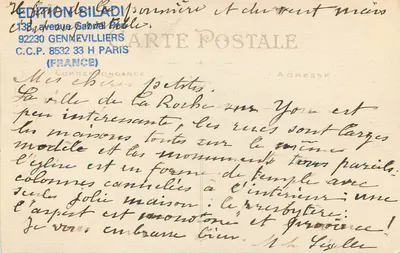 EDITION BILADI
138, avenue Gabriel Péri
92230 GENNEVILLIERS
C.C.P. 8532 33 H PARIS
(FRANCE)
et du vent mais
CARTE POSTALE
CORRESPONDANCE
ADRESSE
Mes chères petites.
La ville de La Roche sur Yon est
peu interessante, les rues sont larges
les maisons toutes sur le même
modèle et les monuments tous pareils:
l'église est en forme de temple avec
colonnes cannelées à l'intérieur: une
seule jolie maison: le presbytère.
l'aspect est monotone et province!
Je vous embrasse bien.